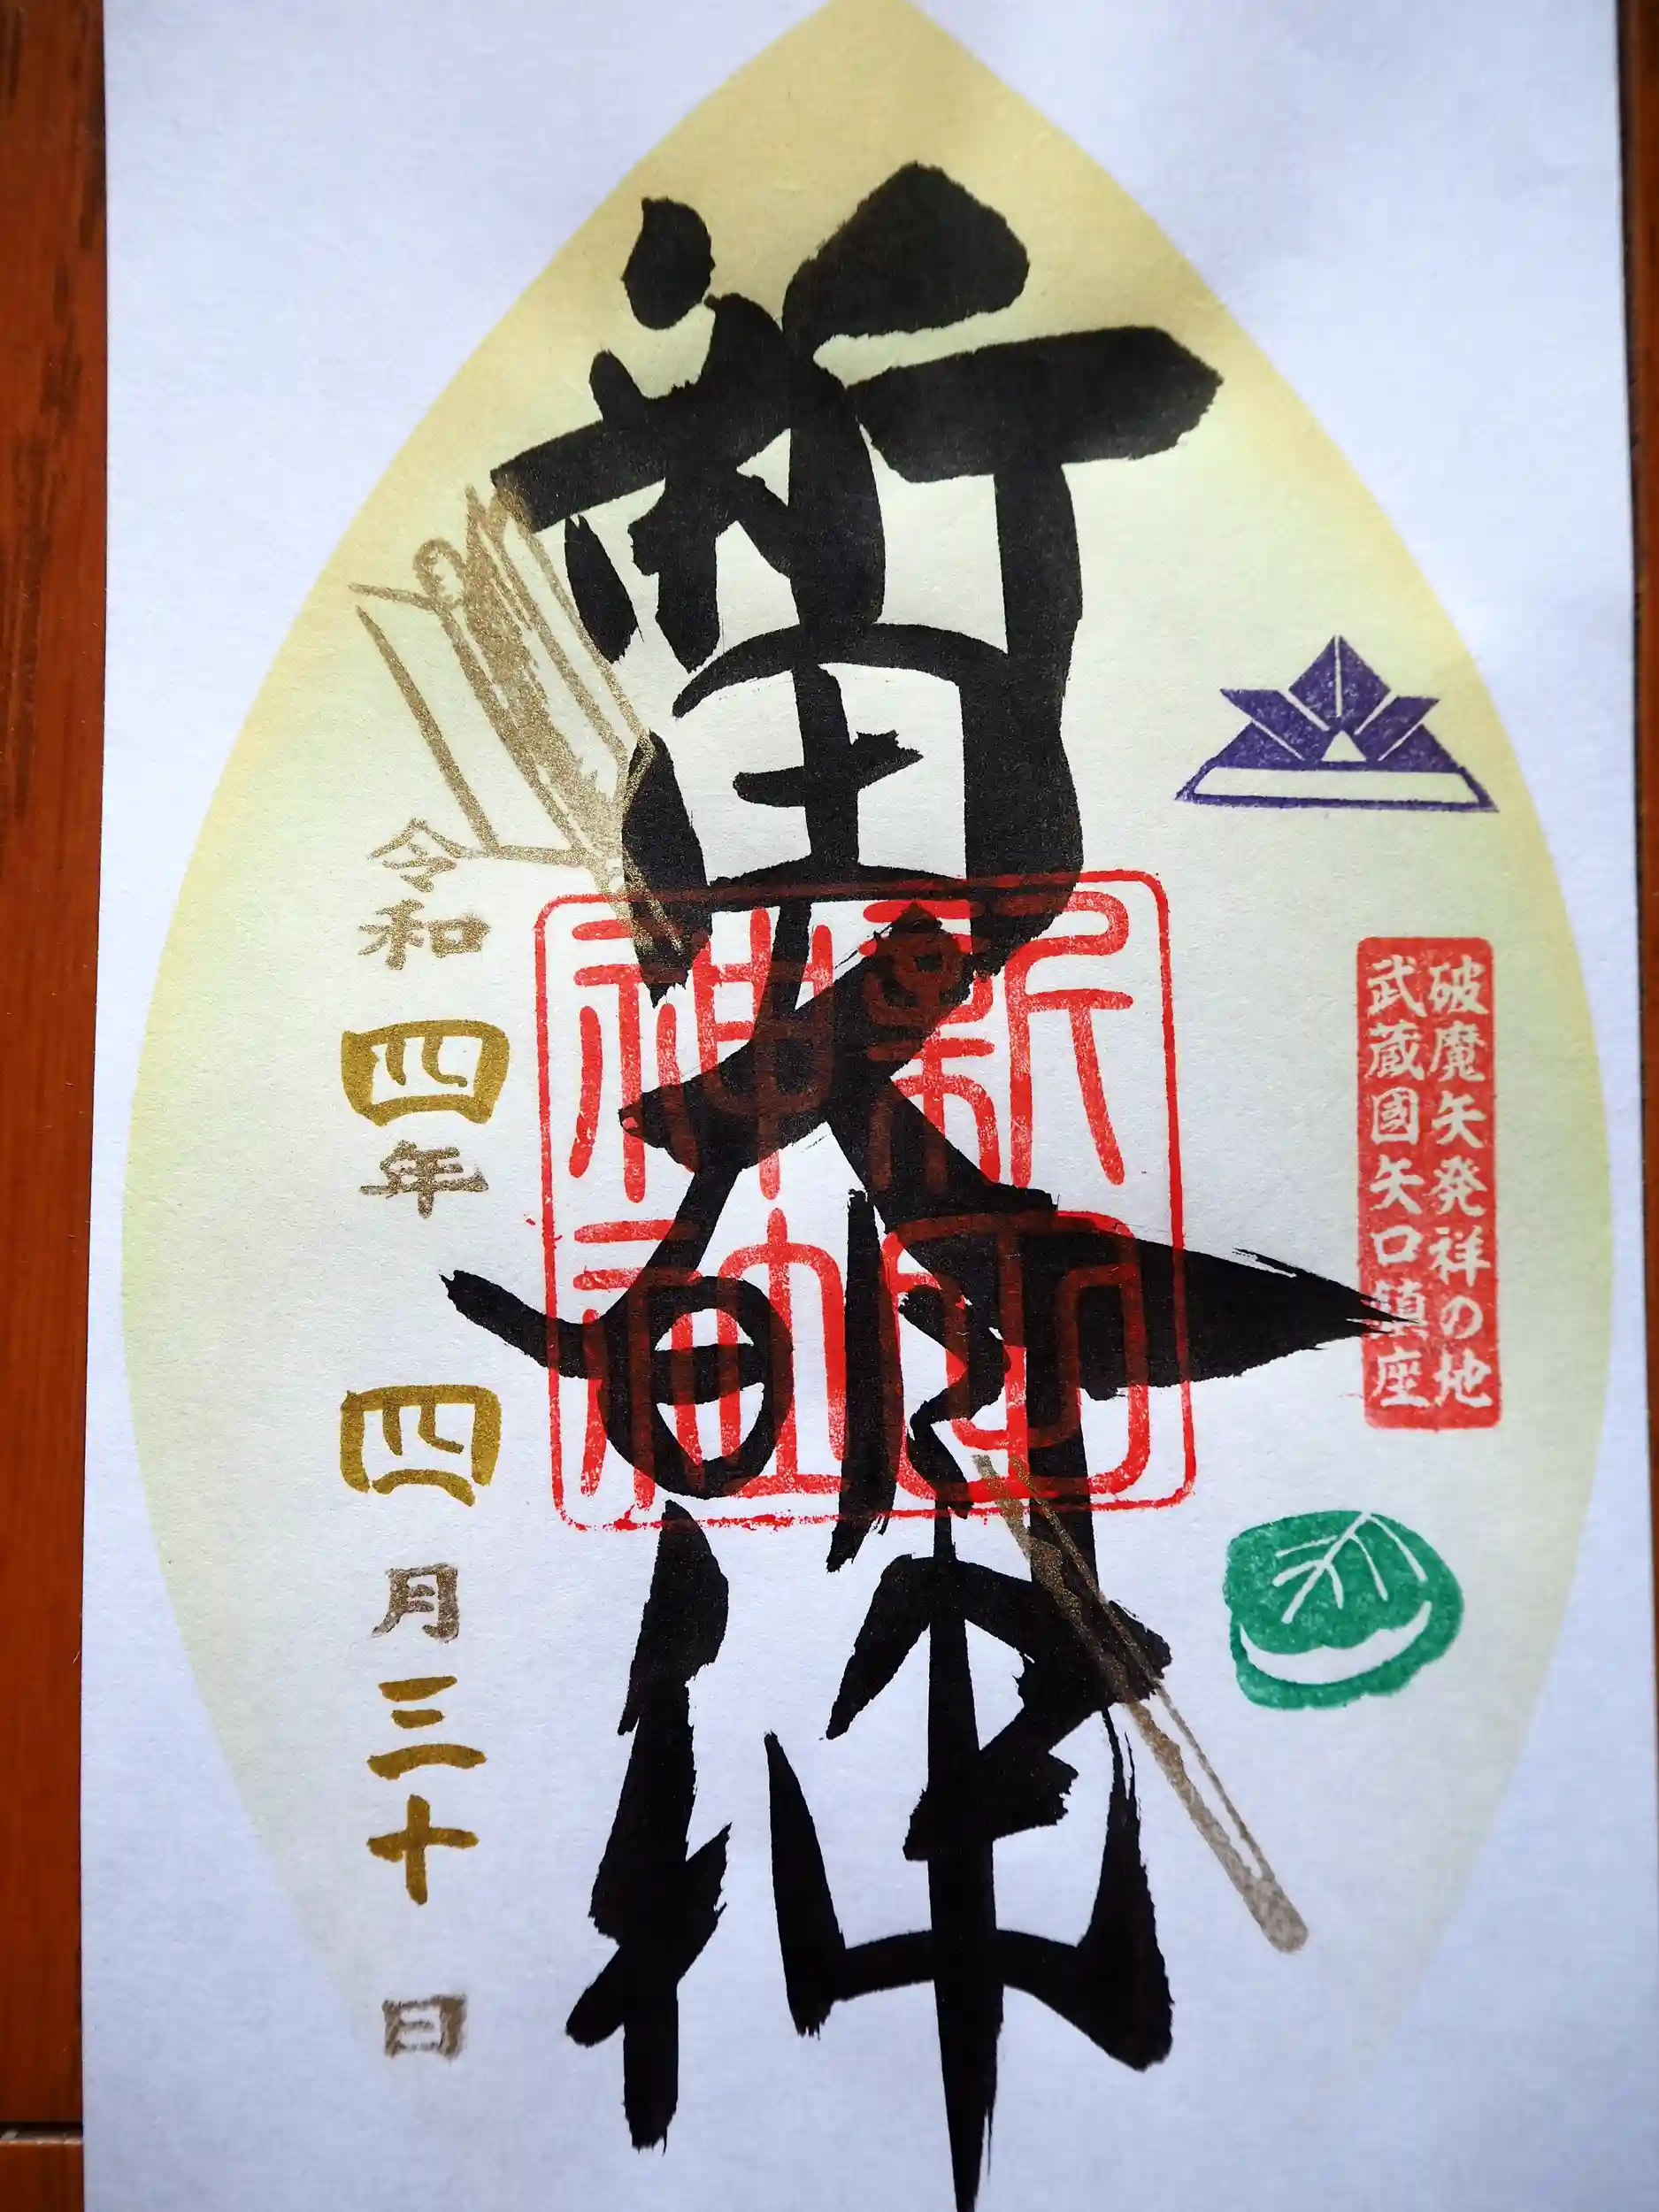 破魔矢発祥の地
武蔵國矢口鎮座
新田大明神
新田
神社
令和四年四月三十日